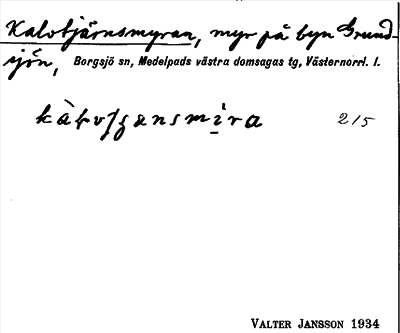 Kalvtjärnsmyran, myr på byn Grund-
sjön, Borgsjö sn, Medelpads västra domsagas tg, Västernorrl. l.
215
VALTER JANSSON 1934